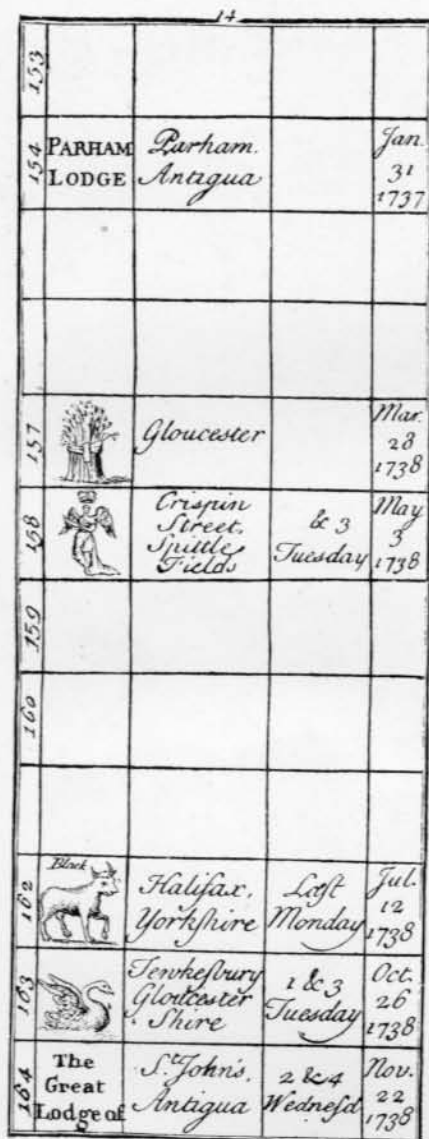 14
153
154 PARHAM LODGE Parham. Antigua Jan. 31 1737
157 Gloucester Mar. 28 1738
158 Crispin Street, Spittle Fields & 3 Tuesday May 3 1738
159
160
162 Black Halifax, Yorkſhire Laſt Monday Jul. 12 1738
163 Tewkeſbury Glouceſter Shire 1 & 3 Tuesday Oct. 26 1738
164 The Great Lodge of St. John's, Antigua 2 & 4 Wedneſd Nov. 22 1738